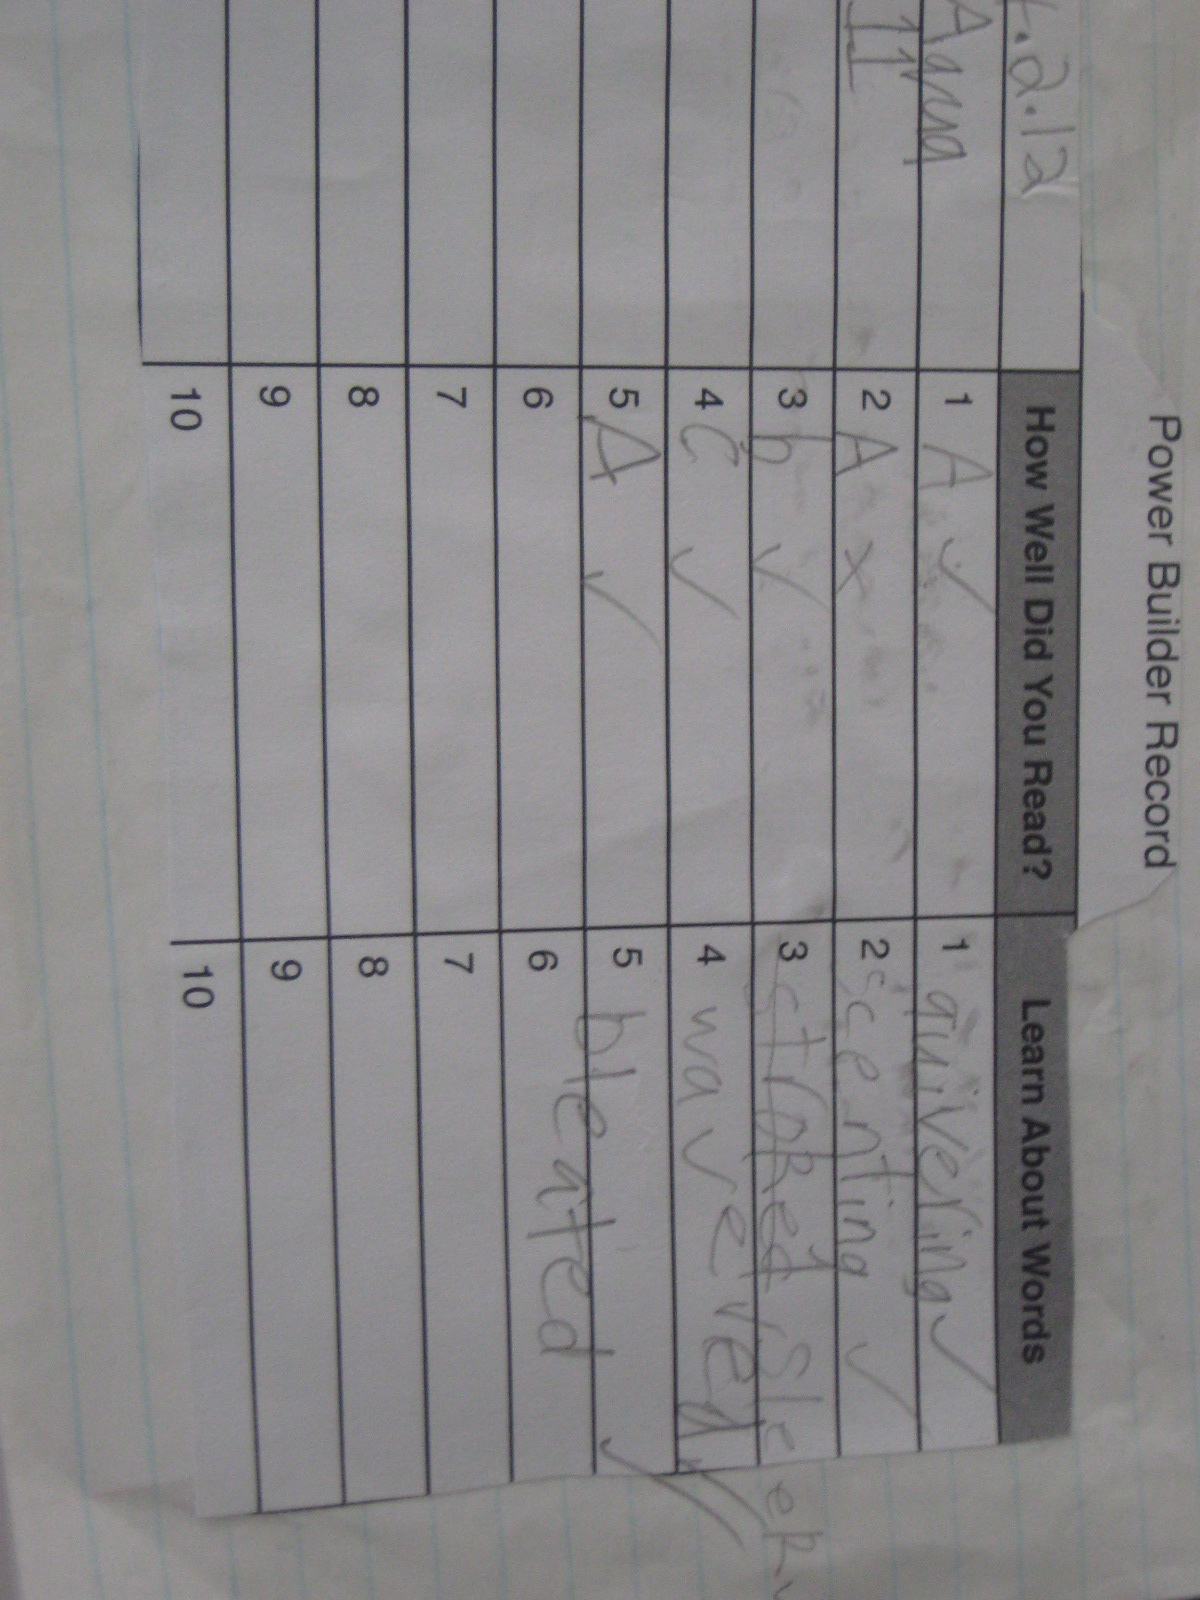 Power Builder Record
.2.12 How Well Did You Read? Learn About Words
Aqua 1 A ✓ 1 quivering ✓
11 2 A x 2 scenting ✓
3 b ✓ 3 Sleek
4 C ✓ 4 waveved ✓
5 A ✓ 5 bleated ✓
6 6
7 7
8 8
9 9
10 10